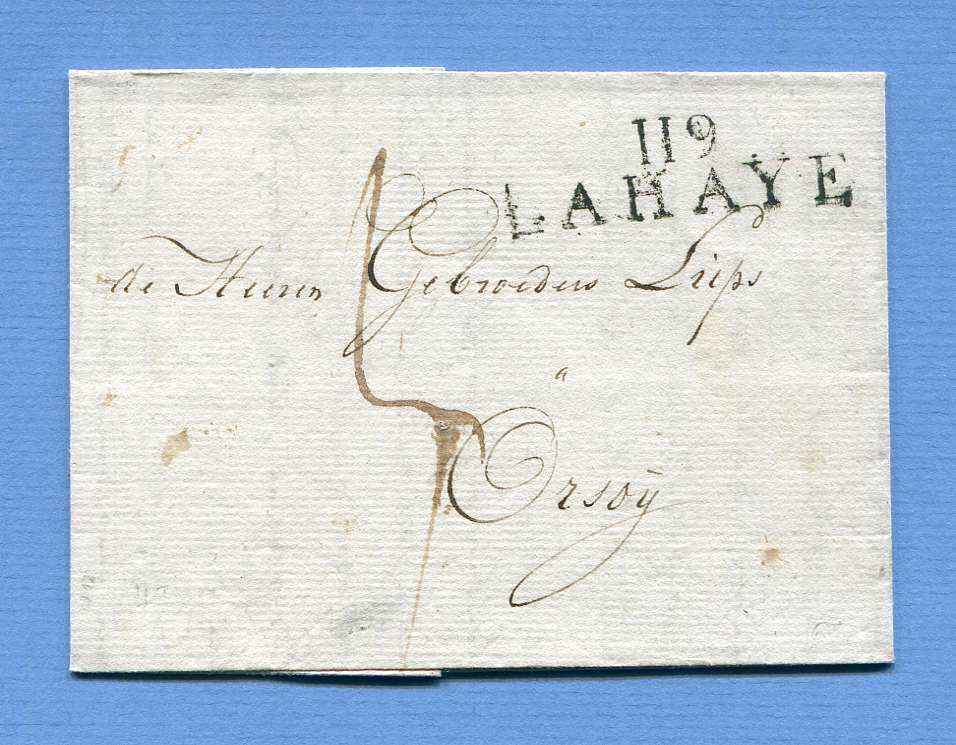 119
LAHAYE
de Heeren Gebroeders Lüps
a
Orsoÿ